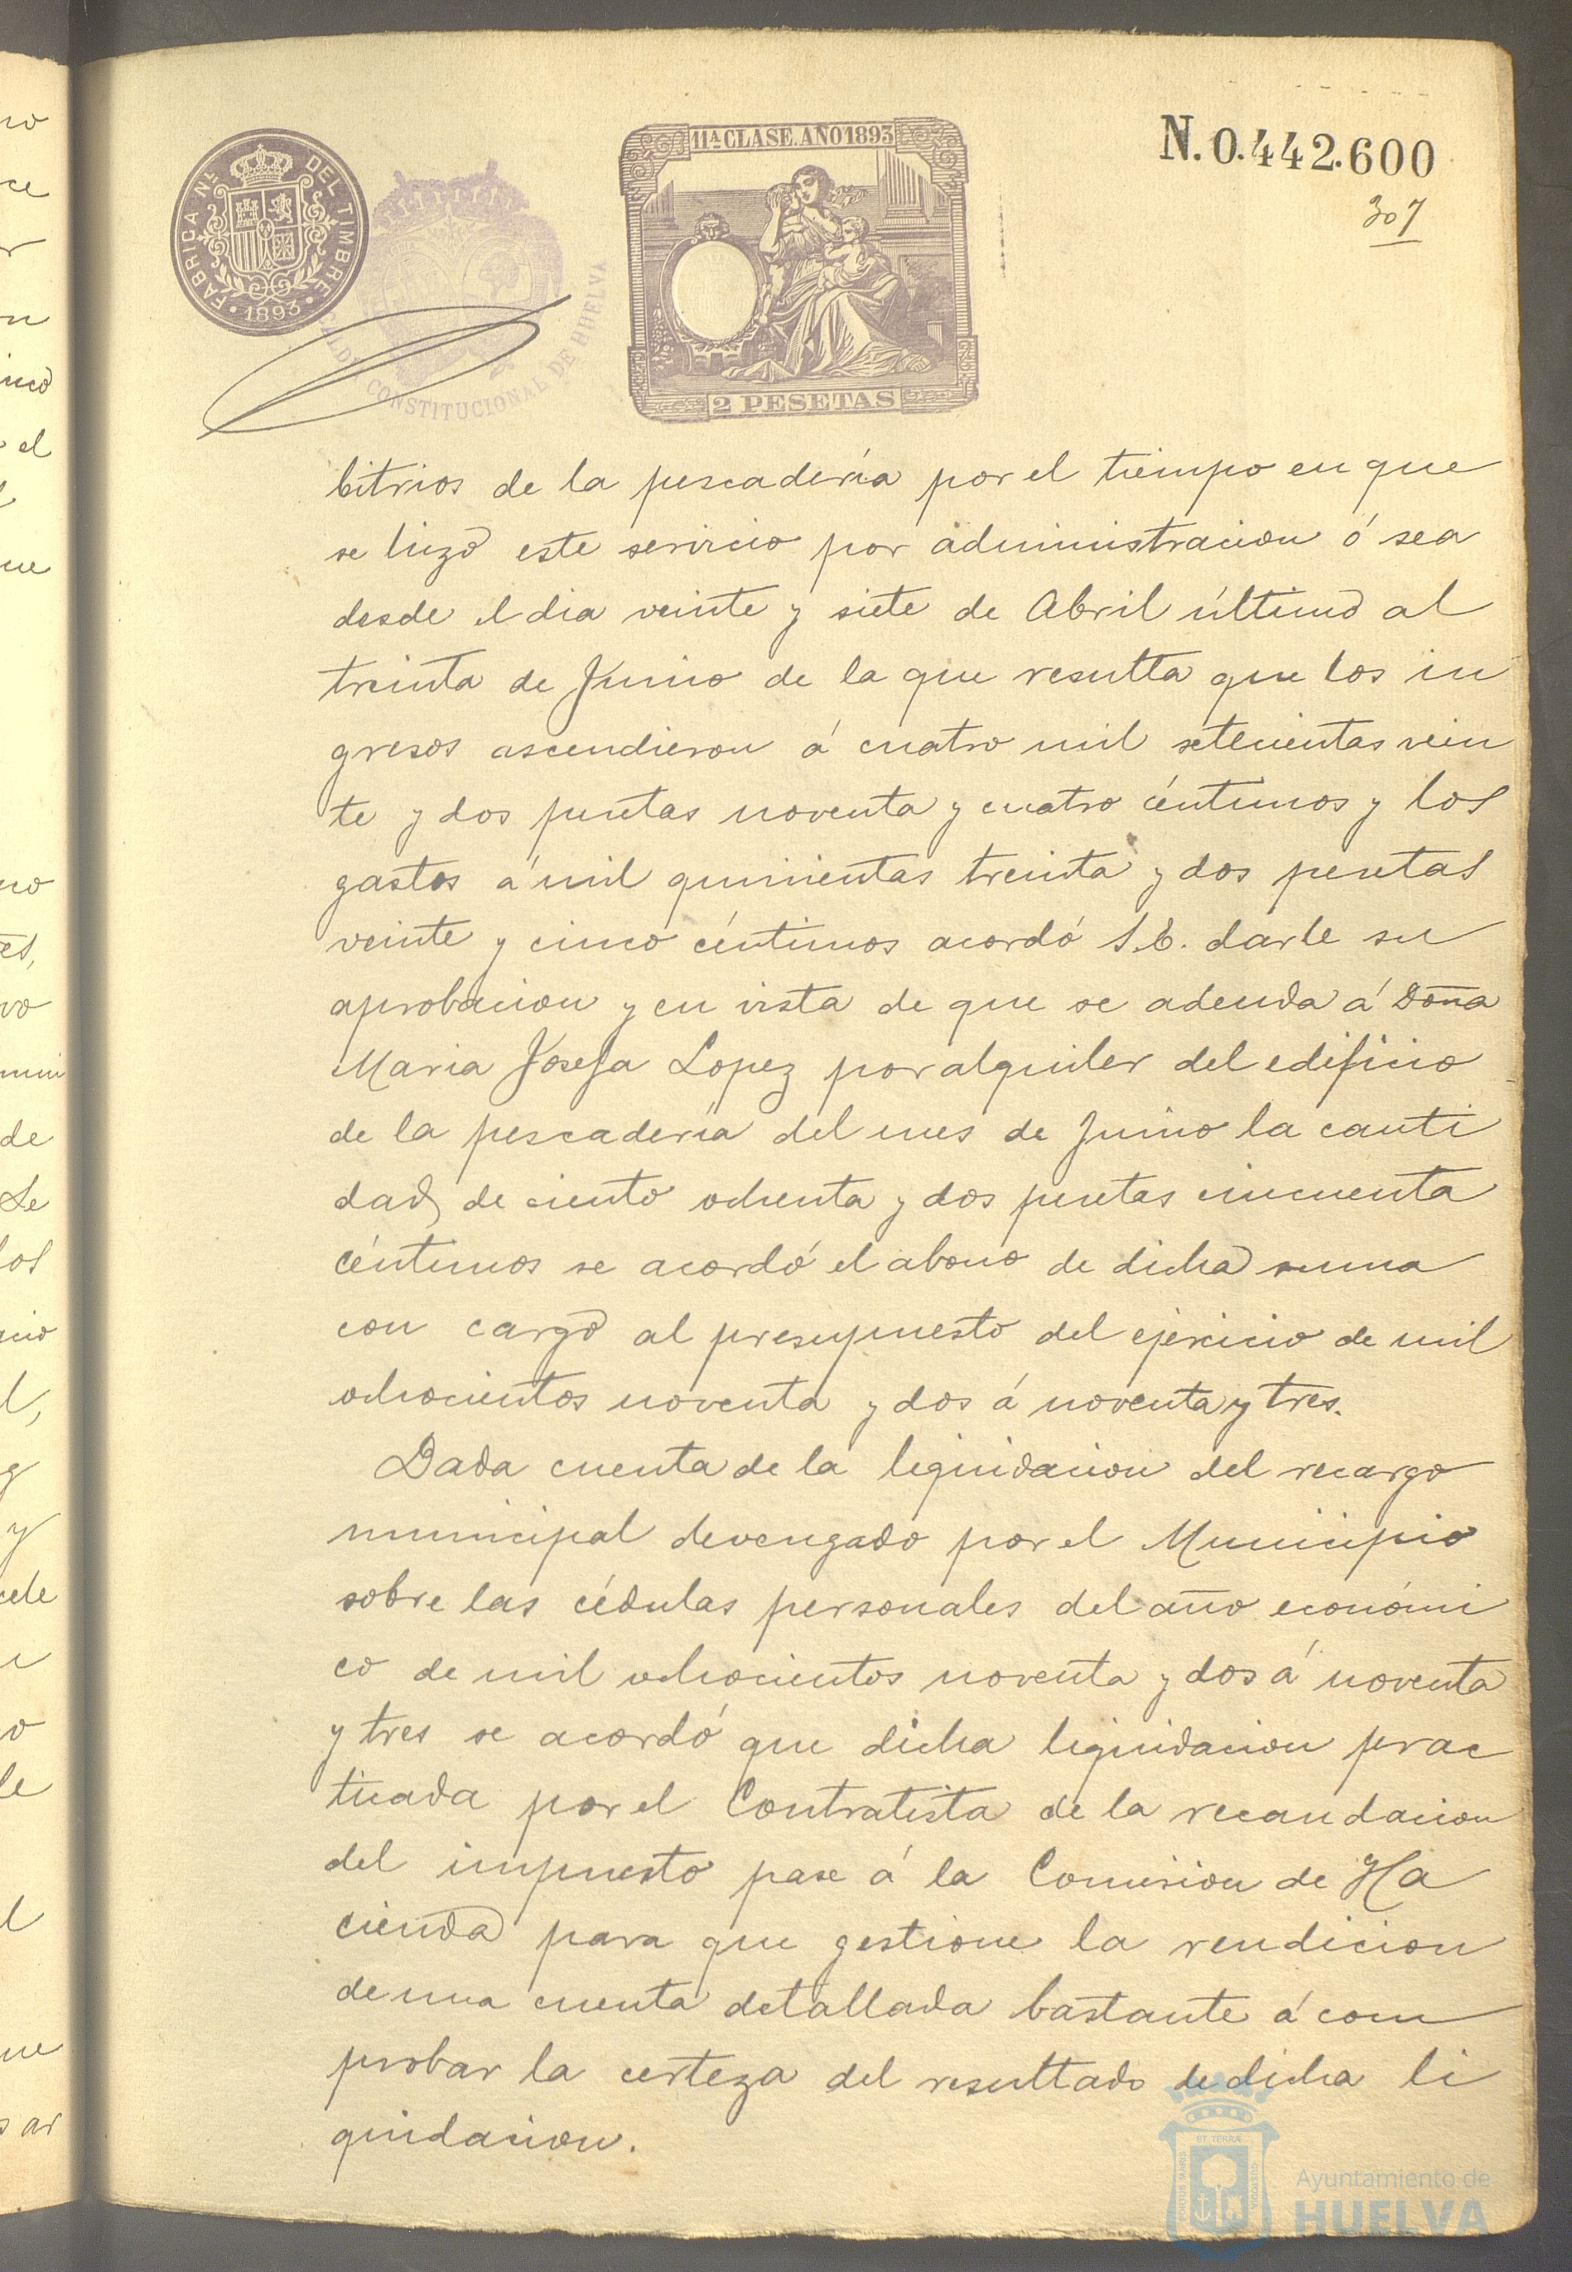 N. 0.442.600
307
FABRICA NL. DEL TIMBRE
1893
ALCALDIA CONSTITUCIONAL DE HUELVA
11ª CLASE. AÑO 1893
2 PESETAS
bitrios de la pescadería por el tiempo en que
se hizo este servicio por administracion ó sea
desde el dia veinte y siete de Abril último al
treinta de Junio de la que resulta que los in
gresos ascendieron á cuatro mil setecientas vein
te y dos pesetas noventa y cuatro céntimos y los
gastos á mil quinientas treinta y dos pesetas
veinte y cinco céntimos acordó S.E. darle su
aprobacion y en vista de que se adeuda á Doña
Maria Josefa Lopez por alquiler del edificio
de la pescadería del mes de Junio la canti
dad de ciento ochenta y dos pesetas cincuenta
céntimos se acordó el abono de dicha suma
con cargo al presupuesto del ejercicio de mil
ochocientos noventa y dos á noventa y tres.
Dada cuenta de la liquidacion del recargo
municipal devengado por el Municipio
sobre las cédulas personales del año económi
co de mil ochocientos noventa y dos á noventa
y tres se acordó que dicha liquidacion prac
ticada por el Contratista de la recaudacion
del impuesto pase á la Comision de Ha
cienda para que gestione la rendicion
de una cuenta detallada bastante á com
probar la certeza del resultado de dicha li
quidacion.
Ayuntamiento de
HUELVA